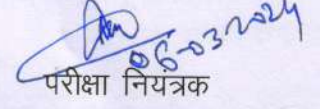 06-03-2024
परीक्षा नियंत्रक